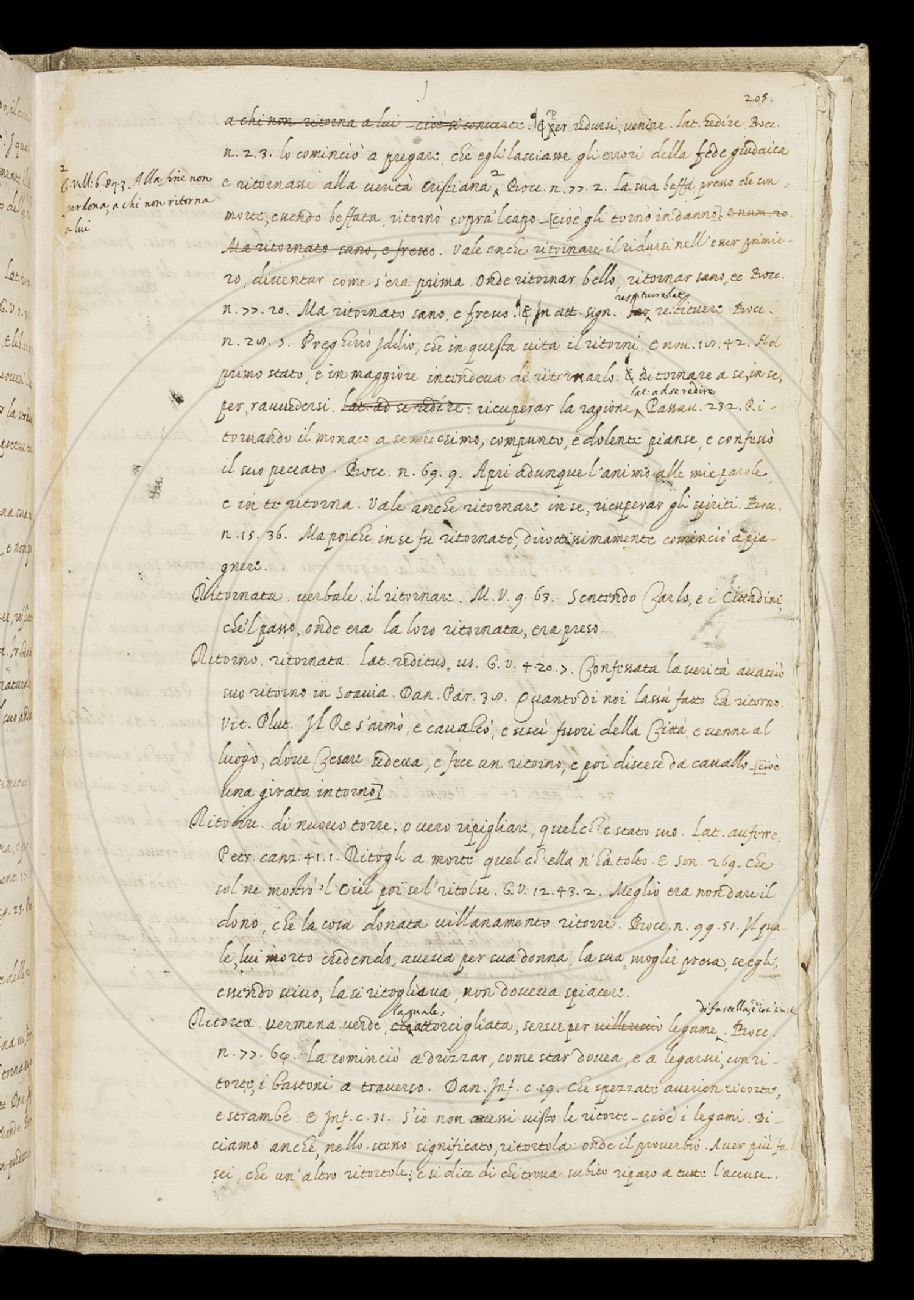 205.
a chi non ritorna a lui cioè si converte. ¶ Per ridursi, venire. lat. redire. Bocc.
n. 2. 3. lo cominciò a pregare, che egli lasciasse gli errori della fede giudaica
2 G. V. M: 6. 87. 3. Alla fine non
perdona, a chi non ritorna
a lui
e ritornasse alla verità cristiana 2 Bocc. n. 77. 2. La sua beffa, presso che con
morte, essendo beffata, ritornò sopra 'l capo [cioè gli tornò in danno] e num. 20.
Ma ritornato sano, e fresco. Vale anche ritornare il ridursi nell'esser primie-
ro, diventar come s'era prima. Onde ritornar bello, ritornar sano, ec Bocc.
n. 77. 20. Ma ritornato sano, e fresco. ¶ In att. sign. restituere lat. restituere Bocc.
n. 28. 5. Pregherrò Iddio, che in questa vita il ritorni, E nov. 18. 42. Nel
primo stato, e in maggiore intendeva di ritornarlo. ¶ Ritornare a se, in se,
lat. ad se redire
per, ravvedersi. lat. ad se redire: ricuperar la ragione, Passav. 232. Ri-
tornando il monaco a se medesimo, compunto, e dolente pianse, e confessò
il suo peccato. Bocc. n. 69. 9. Apri adunque l'animo alle mie parole,
e in te ritorna. Vale anche ritornare in se, ricuperar gli spiriti. Bocc.
n. 15. 36. Ma poiche in se fu ritornato, dirottissimamente cominciò a pia-
gnere.
Ritornata. verbale. il ritornare. M. V. 9. 63. Sentendo Carlo, e i Cittadini
che 'l passo, onde era la loro ritornata, era preso.
Ritorno. ritornata. lat. reditus, us. G. V. 4. 20. 7. Confessata la verità avacciò
suo ritorno in Soavia. Dan. Par. 30. Quanto di noi lassù fatto ha ritorno.
Vit. Plut. Il Re s'armò, e cavalcò, e uscì fuori della Città, e venne al
luogo, dove Cesare sedeva, e fece un ritorno, e poi discese da cavallo [cioè
una girata intorno]
Ritorre. di nuovo torre, o vero ripigliare, quel ch'è stato suo. Lat. auferre
Petr. canz. 41. 1. Ritogli a morte quel ch'ella n'ha tolto. E Son. 269. Che
sol ne mostrò 'l Ciel poi sel ritolse. G. V. 12. 43. 2. Meglio era non dare il
dono, che la cosa donata villanamente ritorre. Bocc. n. 99. 51. Il qua-
le, lui morto credendo, aveva per sua donna, la sua moglie presa, se egli,
essendo vivo, la si ritoglieva, non doveva spiacere.
la quale, di fastella, e
Ritorta. vermena verde, attorcigliata, serve per legame. Bocc.
n. 77. 64. La cominciò a drizzar, come star dovea, e a legarvi, con ri-
torte, i bastoni a traverso. Dan. Inf. c. 19. Che spezzate averien ritorte,
e strambe. E Inf. c. 31. S'io non avessi visto le ritorte - cioè i legami. Di-
ciamo anche, nello stesso significato, ritortola: onde il proverbio. Aver più fa-
sci, che un'altro ritortole; e si dice di chi trova subito riparo a tutte l'accuse.